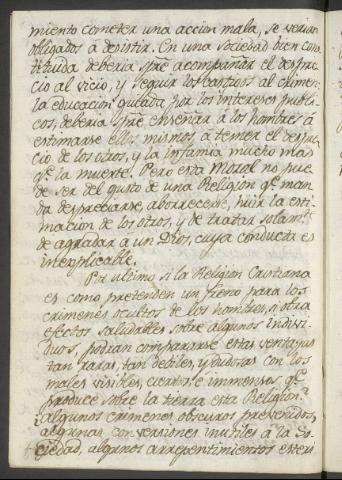 miento cometer una accion mala, se verian
obligados à desistir. En una Sociedad bien cons
tituida deberia spre acompañar el despre
cio al vicio, y seguir los castigos al crimen
la educacion guiada por los intereses publi
cos, deberia spre enseñar à los hombres à
estimarse ellos mismos à temer el despre
cio de los otros, y la infamia mucho mas
qe. la muerte. Pero esta Moral no pue
de ser del gusto de una Religion qe. man
da despreciarse, aborrecerse, huir la esti
macion de los otros, y de tratar solamte.
de agradar a un Dios, cuya conducta es
inexplicable.
Por ultimo si la Religion Cristiana
es como pretenden un freno para los
crimenes ocultos de los hombres, si obra
efectos saludables sobre algunos indivi
duos, podran compararse estas ventajas
tan raras, tan debiles, y dudosas con los
males visibles, ciertos e immensos qe.
produce sobre la tierra esta Religion?
¿algunos crimenes obscuros prevenidos,
algunas conversiones inutiles à la So
ciedad, algunos arrepentimientos esteri